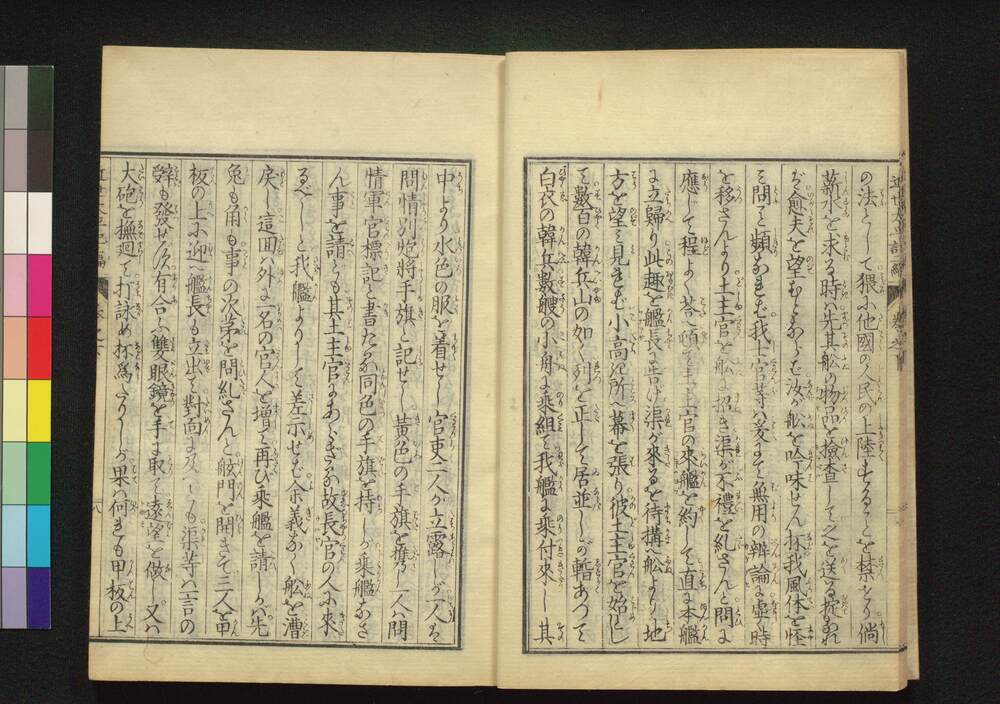 の法として猥に他國の人民の上陸することを禁ぜり倘
薪水を求る時ハ先其舩の物品を撿査して之を送る掟なれ
ば愈夫を望むとならバ汝が舩を吟味せん抔我風体を怪
み問こと頻なれども我士官等ハ爰にて無用の辨論に虚く時
を移さんより土主官を舩に招き渠が不禮を糺さんと問に
應じて程よく荅へ頓て土主官の來艦を約して直に本艦
に立歸り此趣を艦長に告げ渠が來るを待構へ舩より地
方を望み見るに小高き所に幕を張り彼土主官を始とし
て數百の韓兵山の如く列を正して居並しが暫あつて
白衣の韓兵數艘の小舟に乘組て我艦に乘付來し其
中より水色の服を着せし官吏二人が立露しが一人は
問情別炮將手旗と記せし黄色の手旗を携へ一人ハ問
情軍官標記と書たる同色の手旗を持しが乘艦なさ
ん事を請とも其土主官にあらざる故長官の人に來
るべしと我艦よりして差示せば余義なく舩を漕
戻し這回ハ外に一名の官人を増て再び乘艦を請しかバ先
兎も角も事の次第を問糺さんと舷門を開きて三人を甲
板の上に迎へ艦長も立出て對面に及べども渠等ハ一言の
辞も發せず有合ふ雙眼鏡を手に取て遠望を做し又ハ
大砲を撫廻して打詠め抔爲たりしが果ハ何きも甲板の上